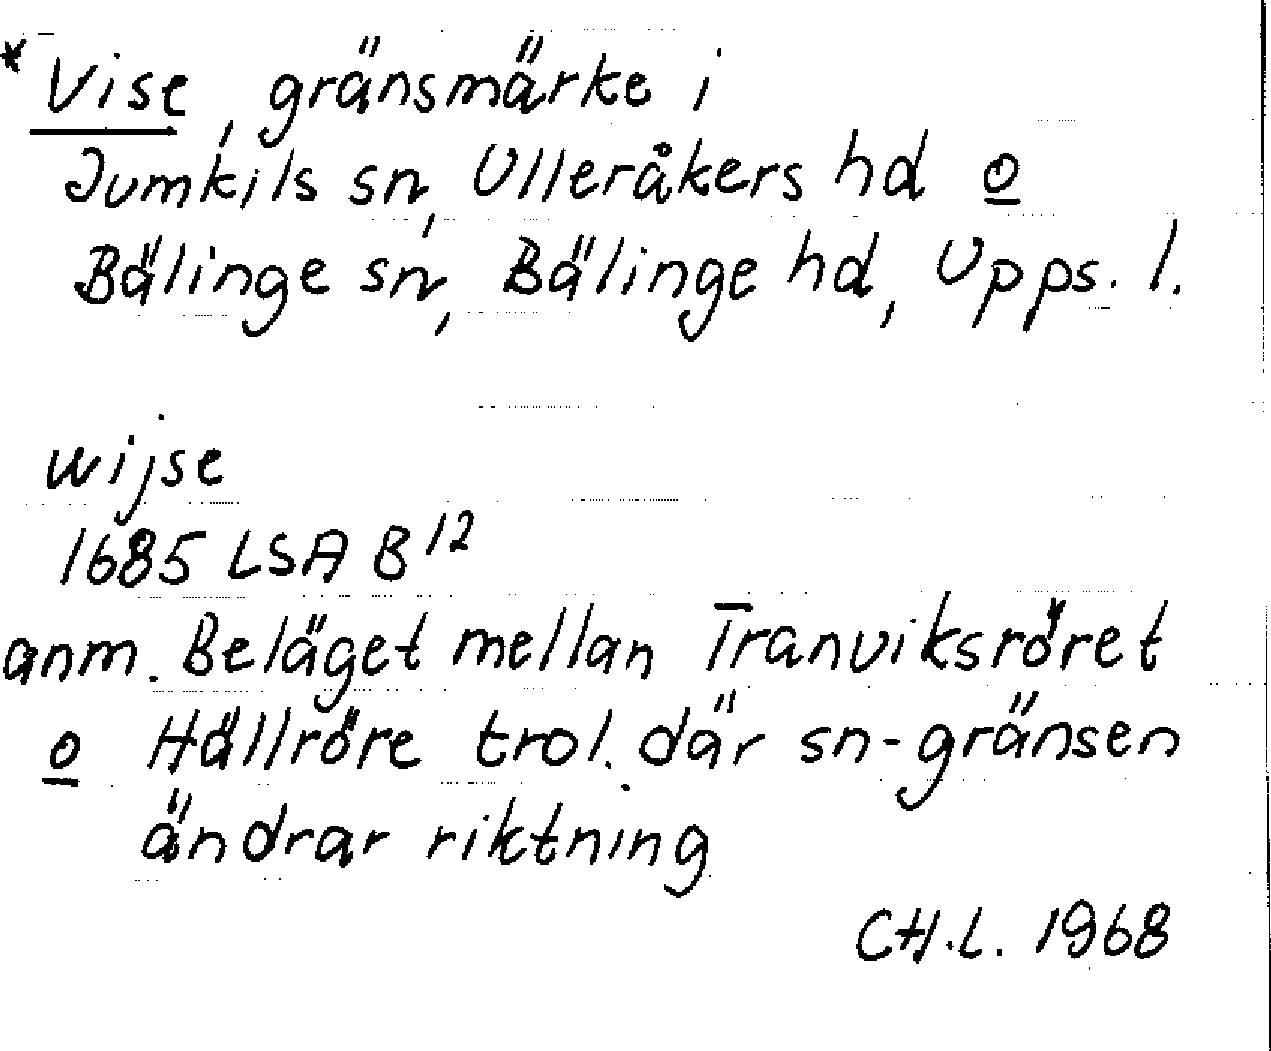 *Vise, gränsmärke i
Jumkils sn, Ulleråkers hd o
Bälinge sn, Bälinge hd, Upps. l.
wijse
1685 LSA B 12
anm. Beläget mellan Tranviksröret
o Hällröre trol. där sn-gränsen
ändrar riktning
CH.L. 1968